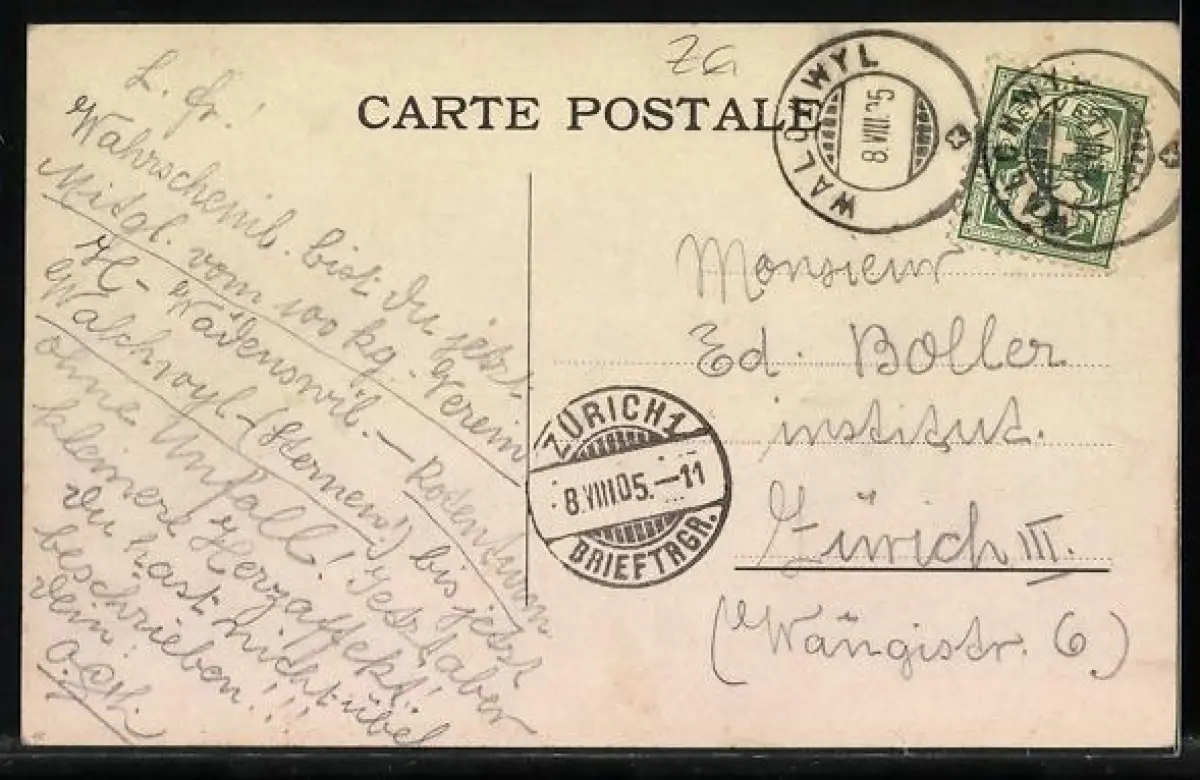 Za
CARTE POSTALE
WALCHWYL
8.VIII.05
WALCHWYL
L. Fr.!
Wahrscheinl. bist Du jetzt
Mitgl. vom 100 kg. Verein
H- Wädenswil. - Rotenturm
Walchwyl-(Sternen!) bis jetzt
ohne Unfall! Jetzt aber
kleinere Herzaffekt!
Du hast nicht übel
beschrieben!!!
Dein
Monsieur
Ed. Boller
institut.
Zürich III.
(Wängistr. 6)
ZÜRICH 1
8.VIII05.-11
BRIEFTRGR.